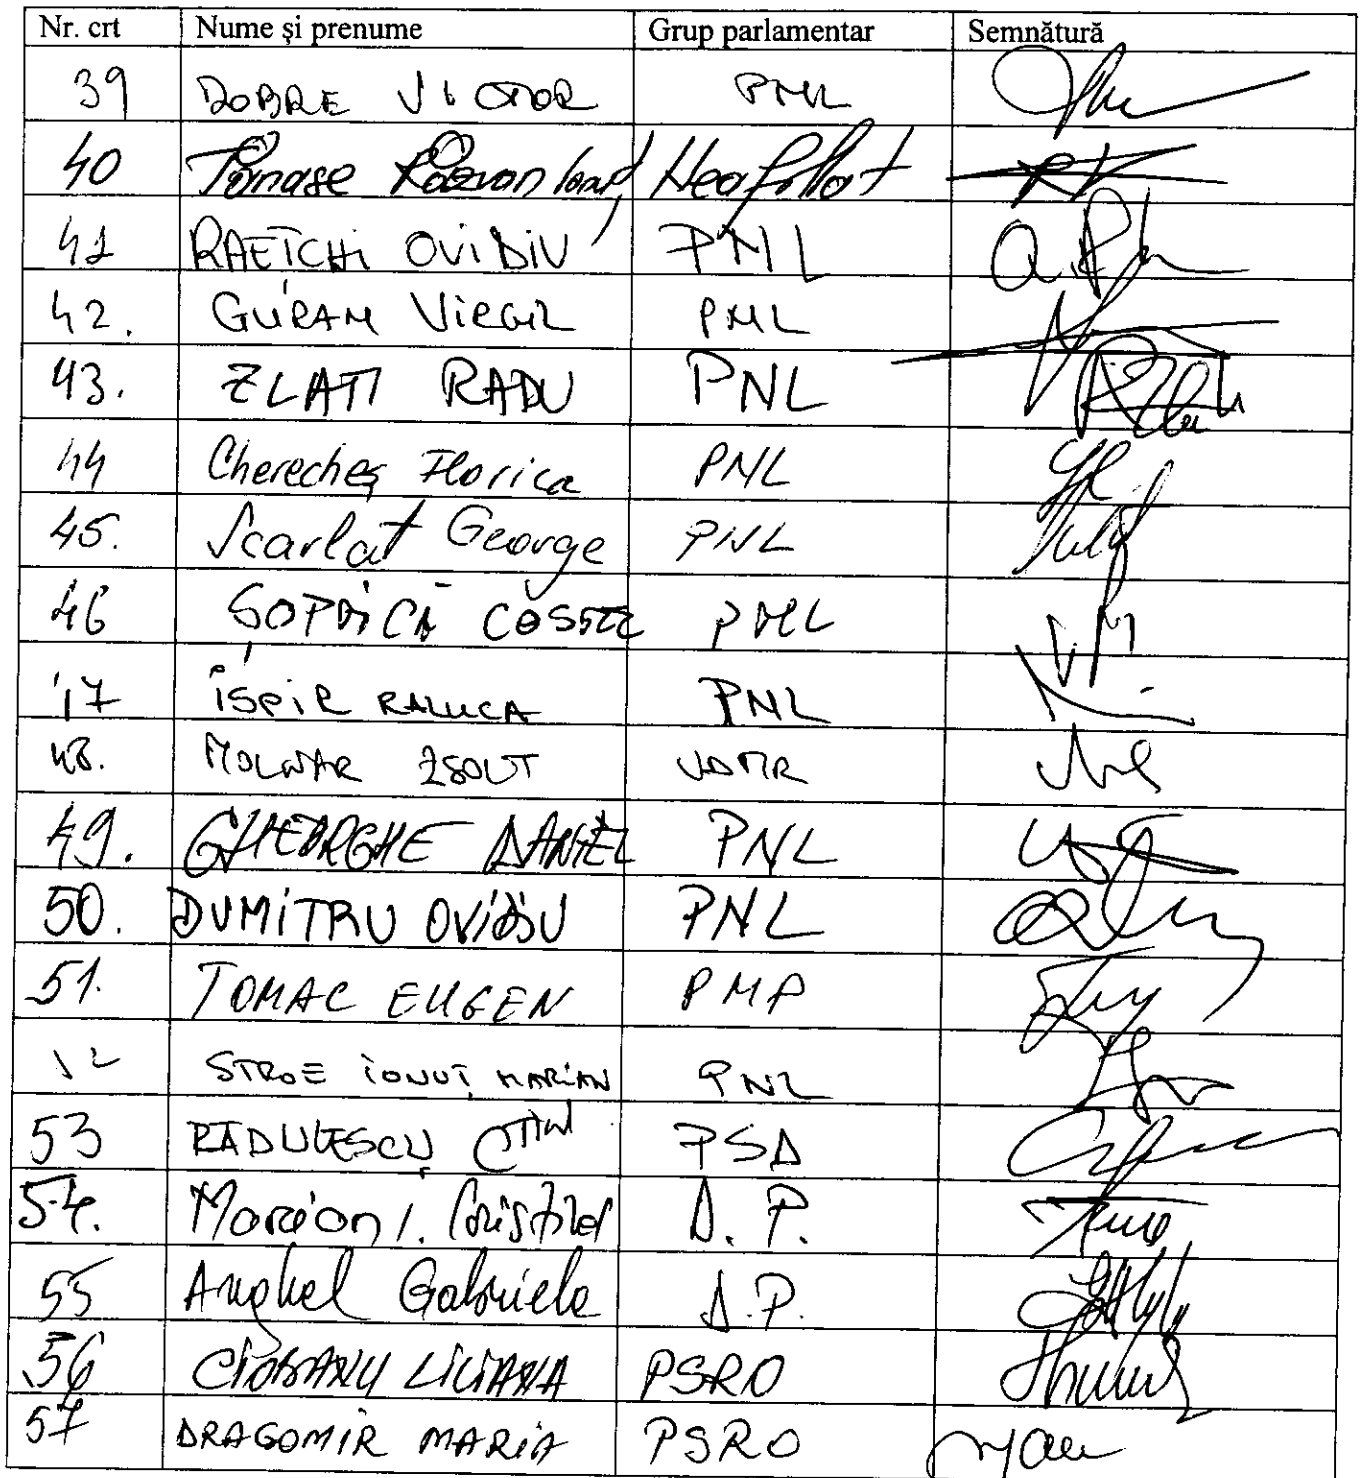 Nr. crt Nume și prenume Grup parlamentar Semnătură
39 DOBRE VICTOR PNL
40 Tănase Răzvan Ioan Neafiliat
41 RAETCHI OVIDIU PNL
42. GURAN VIRGIL PNL
43. ZLATI RADU PNL
44 Cherecheș Florica PNL
45. Scarlat George PNL
46 ȘOPTICĂ COSTEL PNL
47 ISPIR RALUCA PNL
48. MOLNAR ZSOLT UDMR
49. GHEORGHE DANIEL PNL
50. DUMITRU OVIDIU PNL
51. TOMAC EUGEN PMP
52 STROE IONUȚ MARIAN PNL
53 RĂDULESCU PSD
54. Marian I. Cristinel A. P.
55 Anghel Gabriela A.P.
56 CIOBANU LILIANA PSRO
57 DRAGOMIR MARIA PSRO